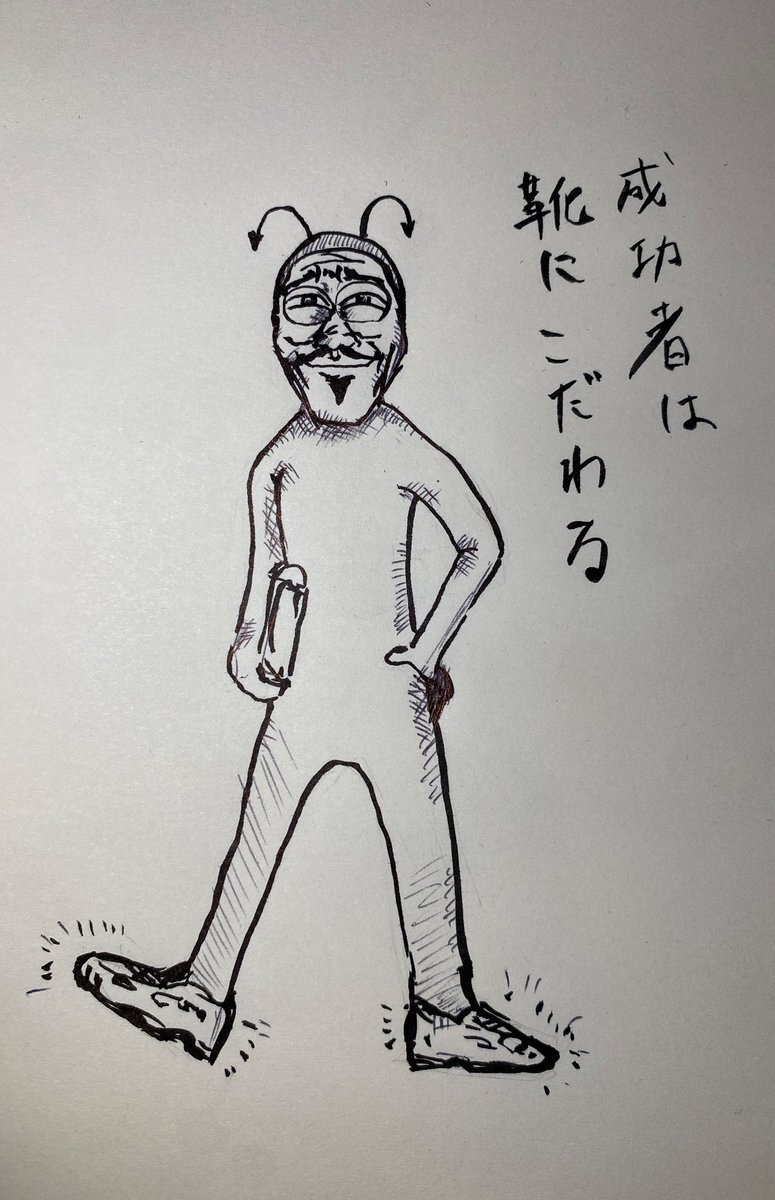 成功者は
靴にこだわる